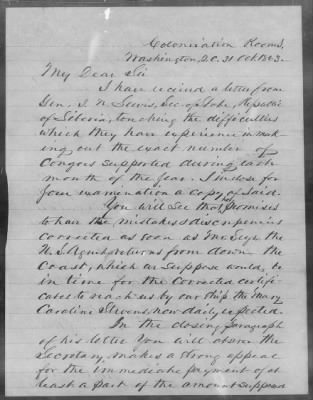 Colonization Rooms,
Washington, D.C. 31 Oct 1863.
My Dear Sir
I have received a letter from
Gen. J. N. Lewis, Sec. of State, Republic
of Liberia, touching the difficulties
which they have experience in mak-
ing out the exact number of
Congoes supported during each
month of the year. I inclose for
your examination a copy of said.
You will see that promises
to have the mistakes & discrepencies
corrected as soon as Mr Seys the
U. S. Agent returns from down the
Coast, which we suppose would be
in time for the corrected certifi-
cates to reach us by our ship the Mary
Caroline Stevens, now daily expected.
In the closing paragraph
of his letter you will observe the
Secretary makes a strong appeal
for the immediate payment of at
least a part of the amount supposed